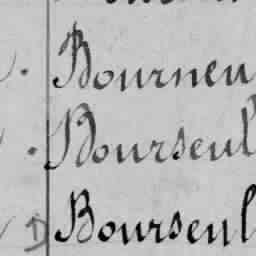 Bourneu
Bourseul
D Bourseul